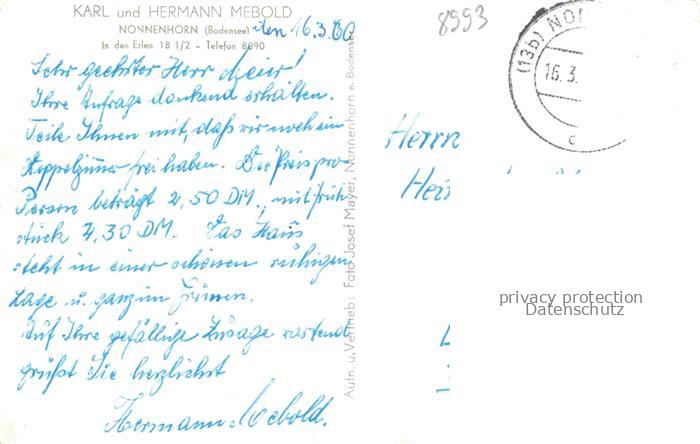 KARL und HERMANN MEBOLD
NONNENHORN (Bodensee) den 16.3.60
In den Erlen 18 1/2 - Telefon 8090
Sehr geehrter Herr Meier!
Ihre Anfrage dankend erhalten.
Teile Ihnen mit, daß wir noch ein
Doppelzimmer frei haben. Der Preis pro
Person beträgt 2,50 DM., mit Früh-
stück 4,30 DM. Das Haus
steht in einer schönen ruhigen
Lage u. ganz im Grünen.
Auf Ihre gefällige Zusage wartend
grüßt Sie herzlichst
Hermann Mebold.
Aufn. u. Vertrieb: Foto Josef Mayer, Nonnenhorn a. Bodensee
8993
(13b) NO
16.3.
c
Herrn
Hei
privacy protection
Datenschutz